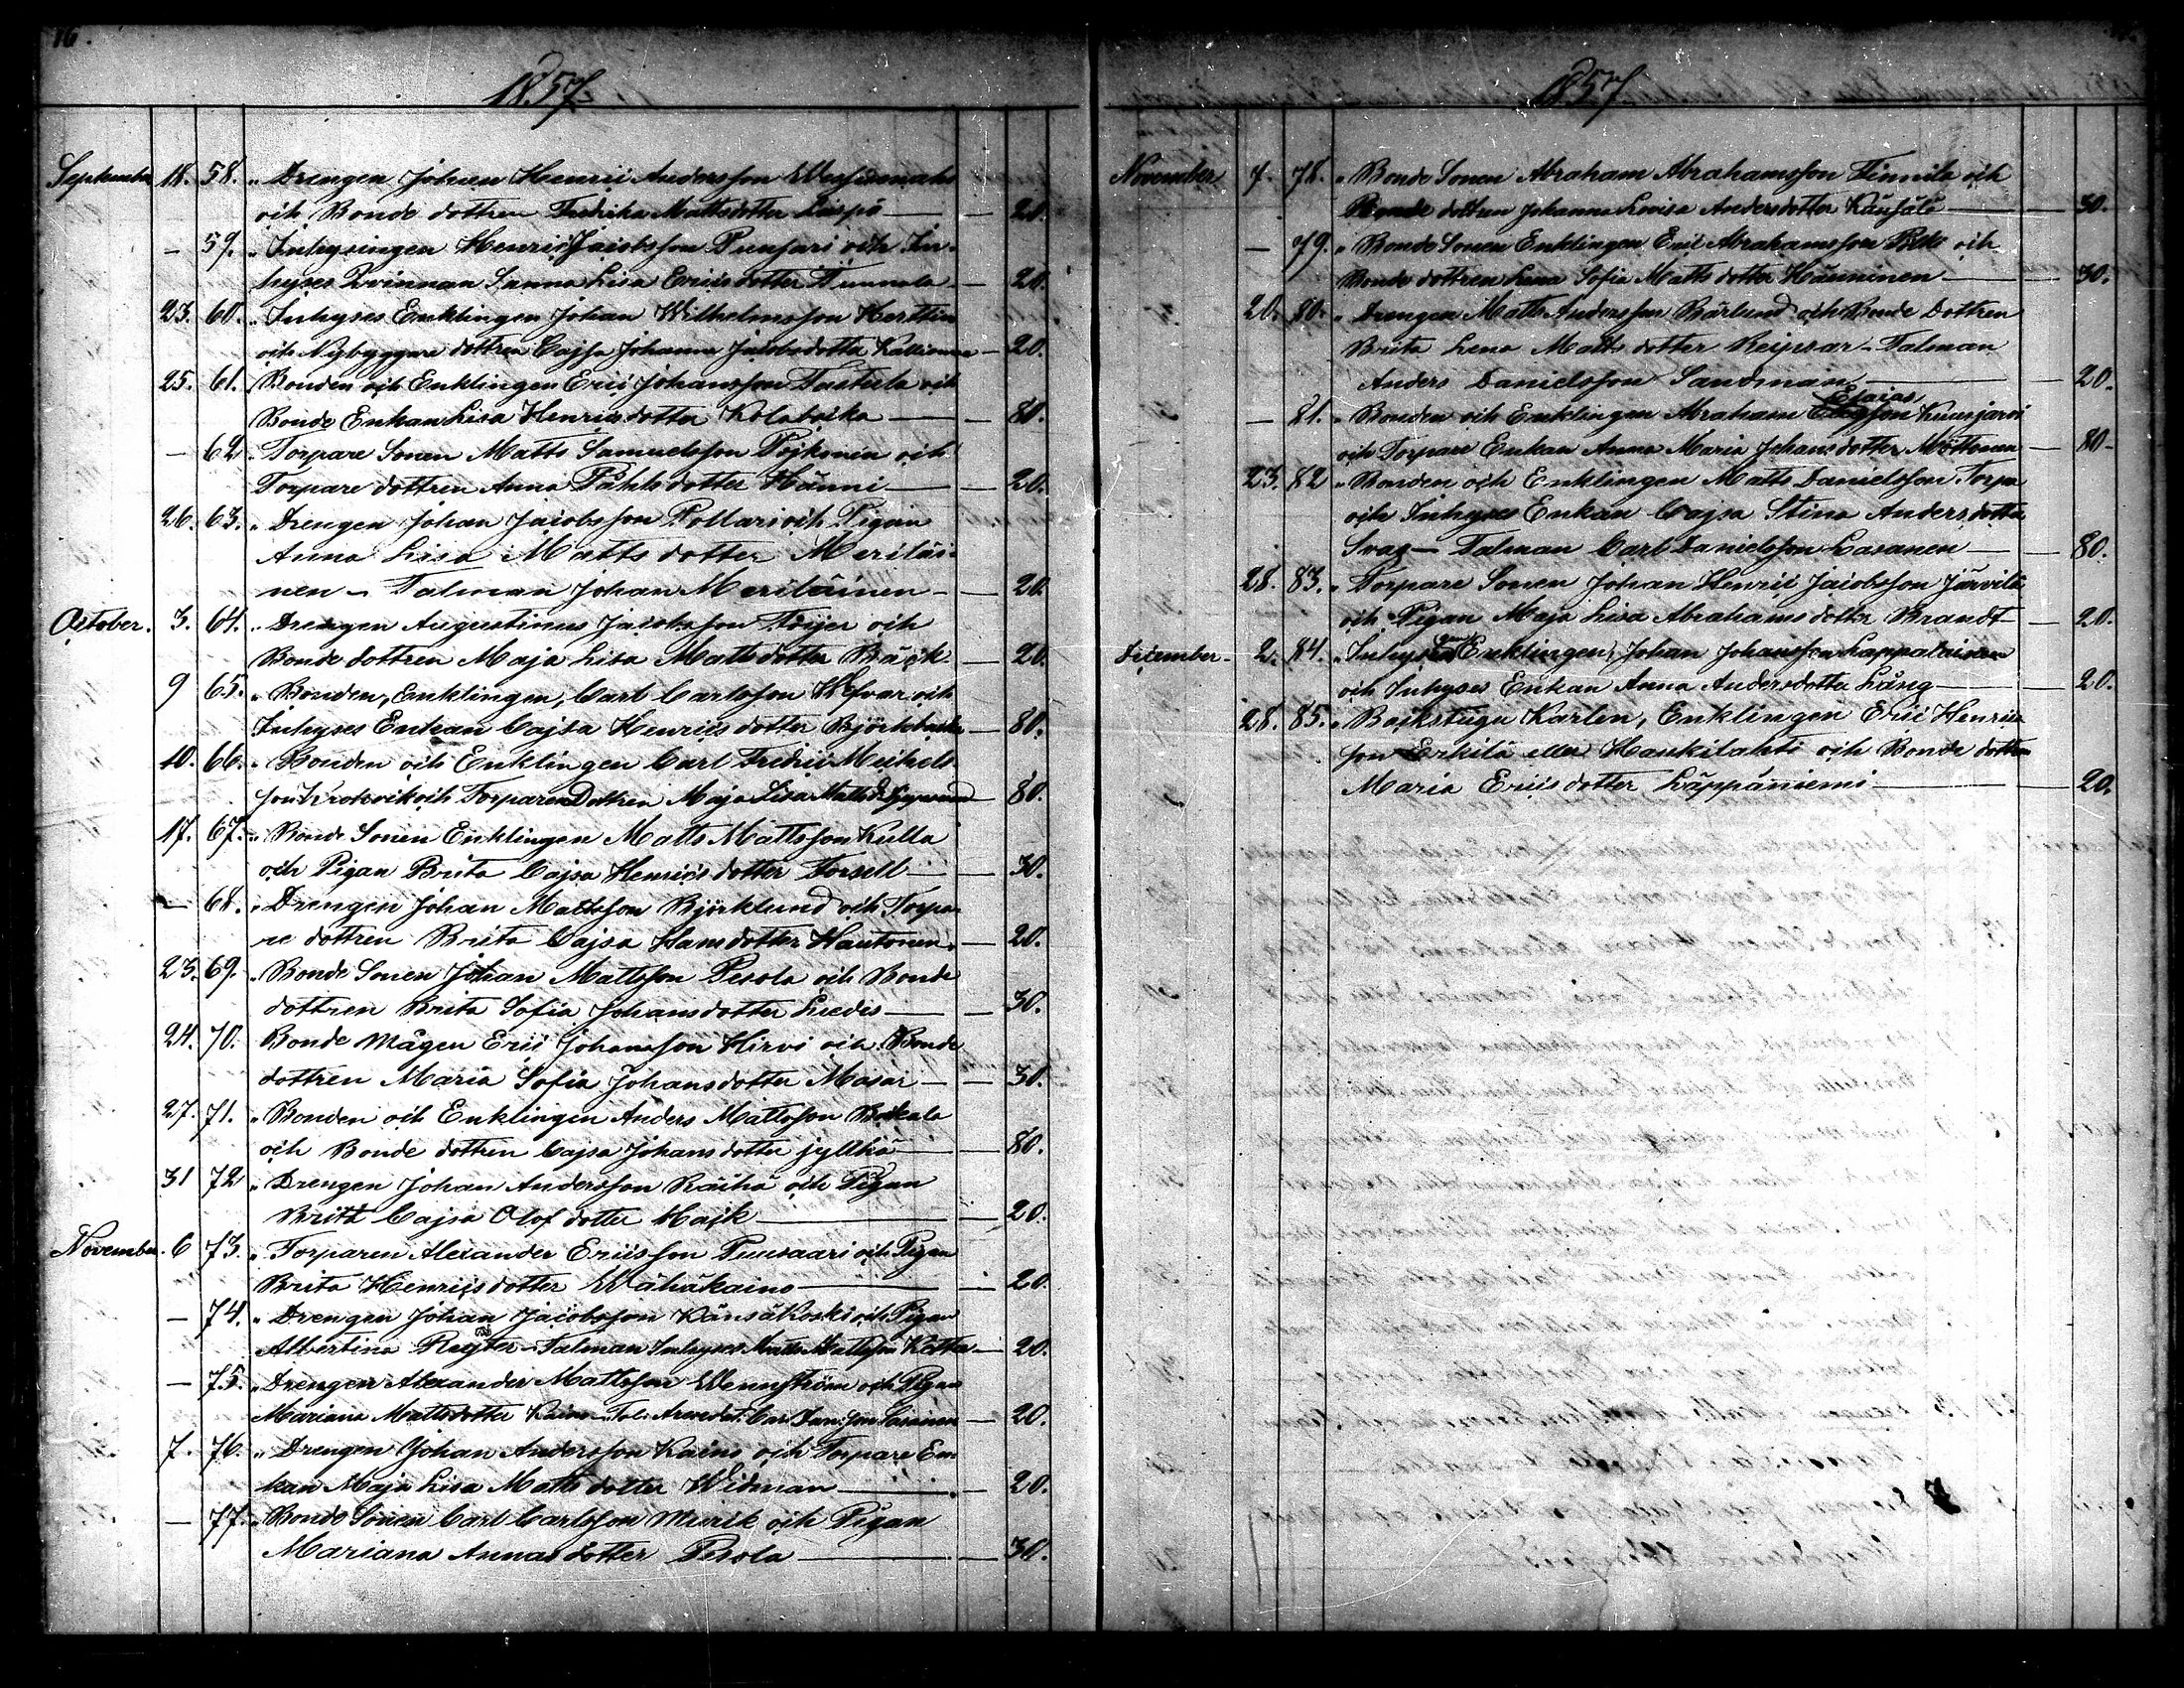 16.
1857
September 18. 58. " Drengen Johan Henric Andersson
och Bonde dottren Fredrika Mattsdotter — 20.
— 59. " Inhysingen Henric Jacobsson Punjari och In-
hyses Qvinnan Sanna Lisa Ericsdotter Tunnala — 20.
23. 60. " Inhyses Enklingen Johan Wilhelmsson Herttin
och Nybyggare dottren Cajsa Johanna Jacobsdotter — 20.
25. 61. Bonden och Enklingen Eric Johansson Tastula och
Bonde Enkan Lisa Henricsdotter — 80.
— 62. Torpare Sonen Matts Samuelsson Pojkonen och
Torpare dottren Anna Påhlsdotter Hänni — 20.
26. 63. " Drengen Johan Jacobsson Pollari och Pigan
Anna Lisa Mattsdotter Meriläi-
nen – Talman Johan Meriläinen — 20.
October. 3. 64. " Drengen Augustinus Jacobsson och
Bonde dottren Maja Lisa Mattsdotter Bäck — 20.
9 65. " Bonden, Enklingen, Carl Carlsson och
Inhyses Enkan Cajsa Henricsdotter — 80.
10. 66. " Bonden och Enklingen Carl Fredric Michels-
son Krokvik och Torparen Dottren Maja Lisa Mattsdr — 80.
17. 67. " Bonde Sonen Enklingen Matts Mattsson Kulla
och Pigan Brita Cajsa Henricsdotter Forsell — 30.
— 68. " Drengen Johan Mattsson Björklund och Torpa-
re dottren Brita Cajsa Hansdotter Hautonen. — 20.
23. 69. " Bonde Sonen Johan Mattsson Pesola och Bonde
dottren Brita Sofia Johansdotter Liedes — 30.
24. 70. Bonde Mågen Eric Johansson Hirvi och Bonde
dottren Maria Sofia Johansdotter Masar — 30.
27. 71. " Bonden och Enklingen Anders Mattsson
och Bonde dottren Cajsa Johansdotter Jyllhä — 80.
31 72 " Drengen Johan Andersson Räihä och Pigan
Brita Cajsa Olofdotter Hajk — 20.
November. 6 73. " Torparen Alexander Ericsson Tuuraari och Pigan
Brita Henricsdotter Wähäkaino — 20.
— 74. " Drengen Johan Jacobsson Känsäkoski och Pigan
Albertina – Talman Inhyses Matts Mattsson Kotka — 20.
— 75. " Drengen Alexander Mattsson Wennström och Pigan
Mariana Mattsdotter Kaino – — 20.
7. 76. " Drengen Johan Andersson Kaino och Torpare En-
kan Maja Lisa Mattsdotter Widman — 20.
— 77. " Bonde Sonen Carl Carlsson Mirik och Pigan
Mariana Annasdotter Pesola — 30.
1857
November 7. 78. " Bonde Sonen Abraham Abrahamsson Finnila och
Bonde dottren Johanna Lovisa Andersdotter Känsälä — 30.
— 79. " Bonde Sonen Enklingen Eric Abrahamsson och
Bonde dottren Anna Sofia Mattsdotter Hänninen — 30.
20. 80. " Drengen Matts Andersson Bärlund och Bonde Dottren
Brita Lena Mattsdotter Keipsar – Talman
Anders Danielsson Sandman — 20.
Esaias
— 81. " Bonden och Enklingen Abraham Kuusjärvi
och Torpare Enkan Anna Maria Johansdotter Möttönen — 80.
23. 82 " Bonden och Enklingen Matts Danielsson Torpa
och Inhyses Enkan Cajsa Stina Andersdotter
Svag – Talman Carl Danielsson Lasanen — 80.
28. 83. " Torpare Sonen Johan Henric Jacobsson Järvilä
och Pigan Maja Lisa Abrahamsdotter Brandt — 20.
December. 2. 84. " Inhyses Enklingen, Johan Johansson Lappalainen
och Inhyses Enkan Anna Andersdotter Lång — 20.
28. 85. " Backstugu Karlen, Enklingen Eric Henrics-
son Erkilä eller Haukilahti och Bonde dottren
Maria Ericsdotter Läppäniemi — 20.